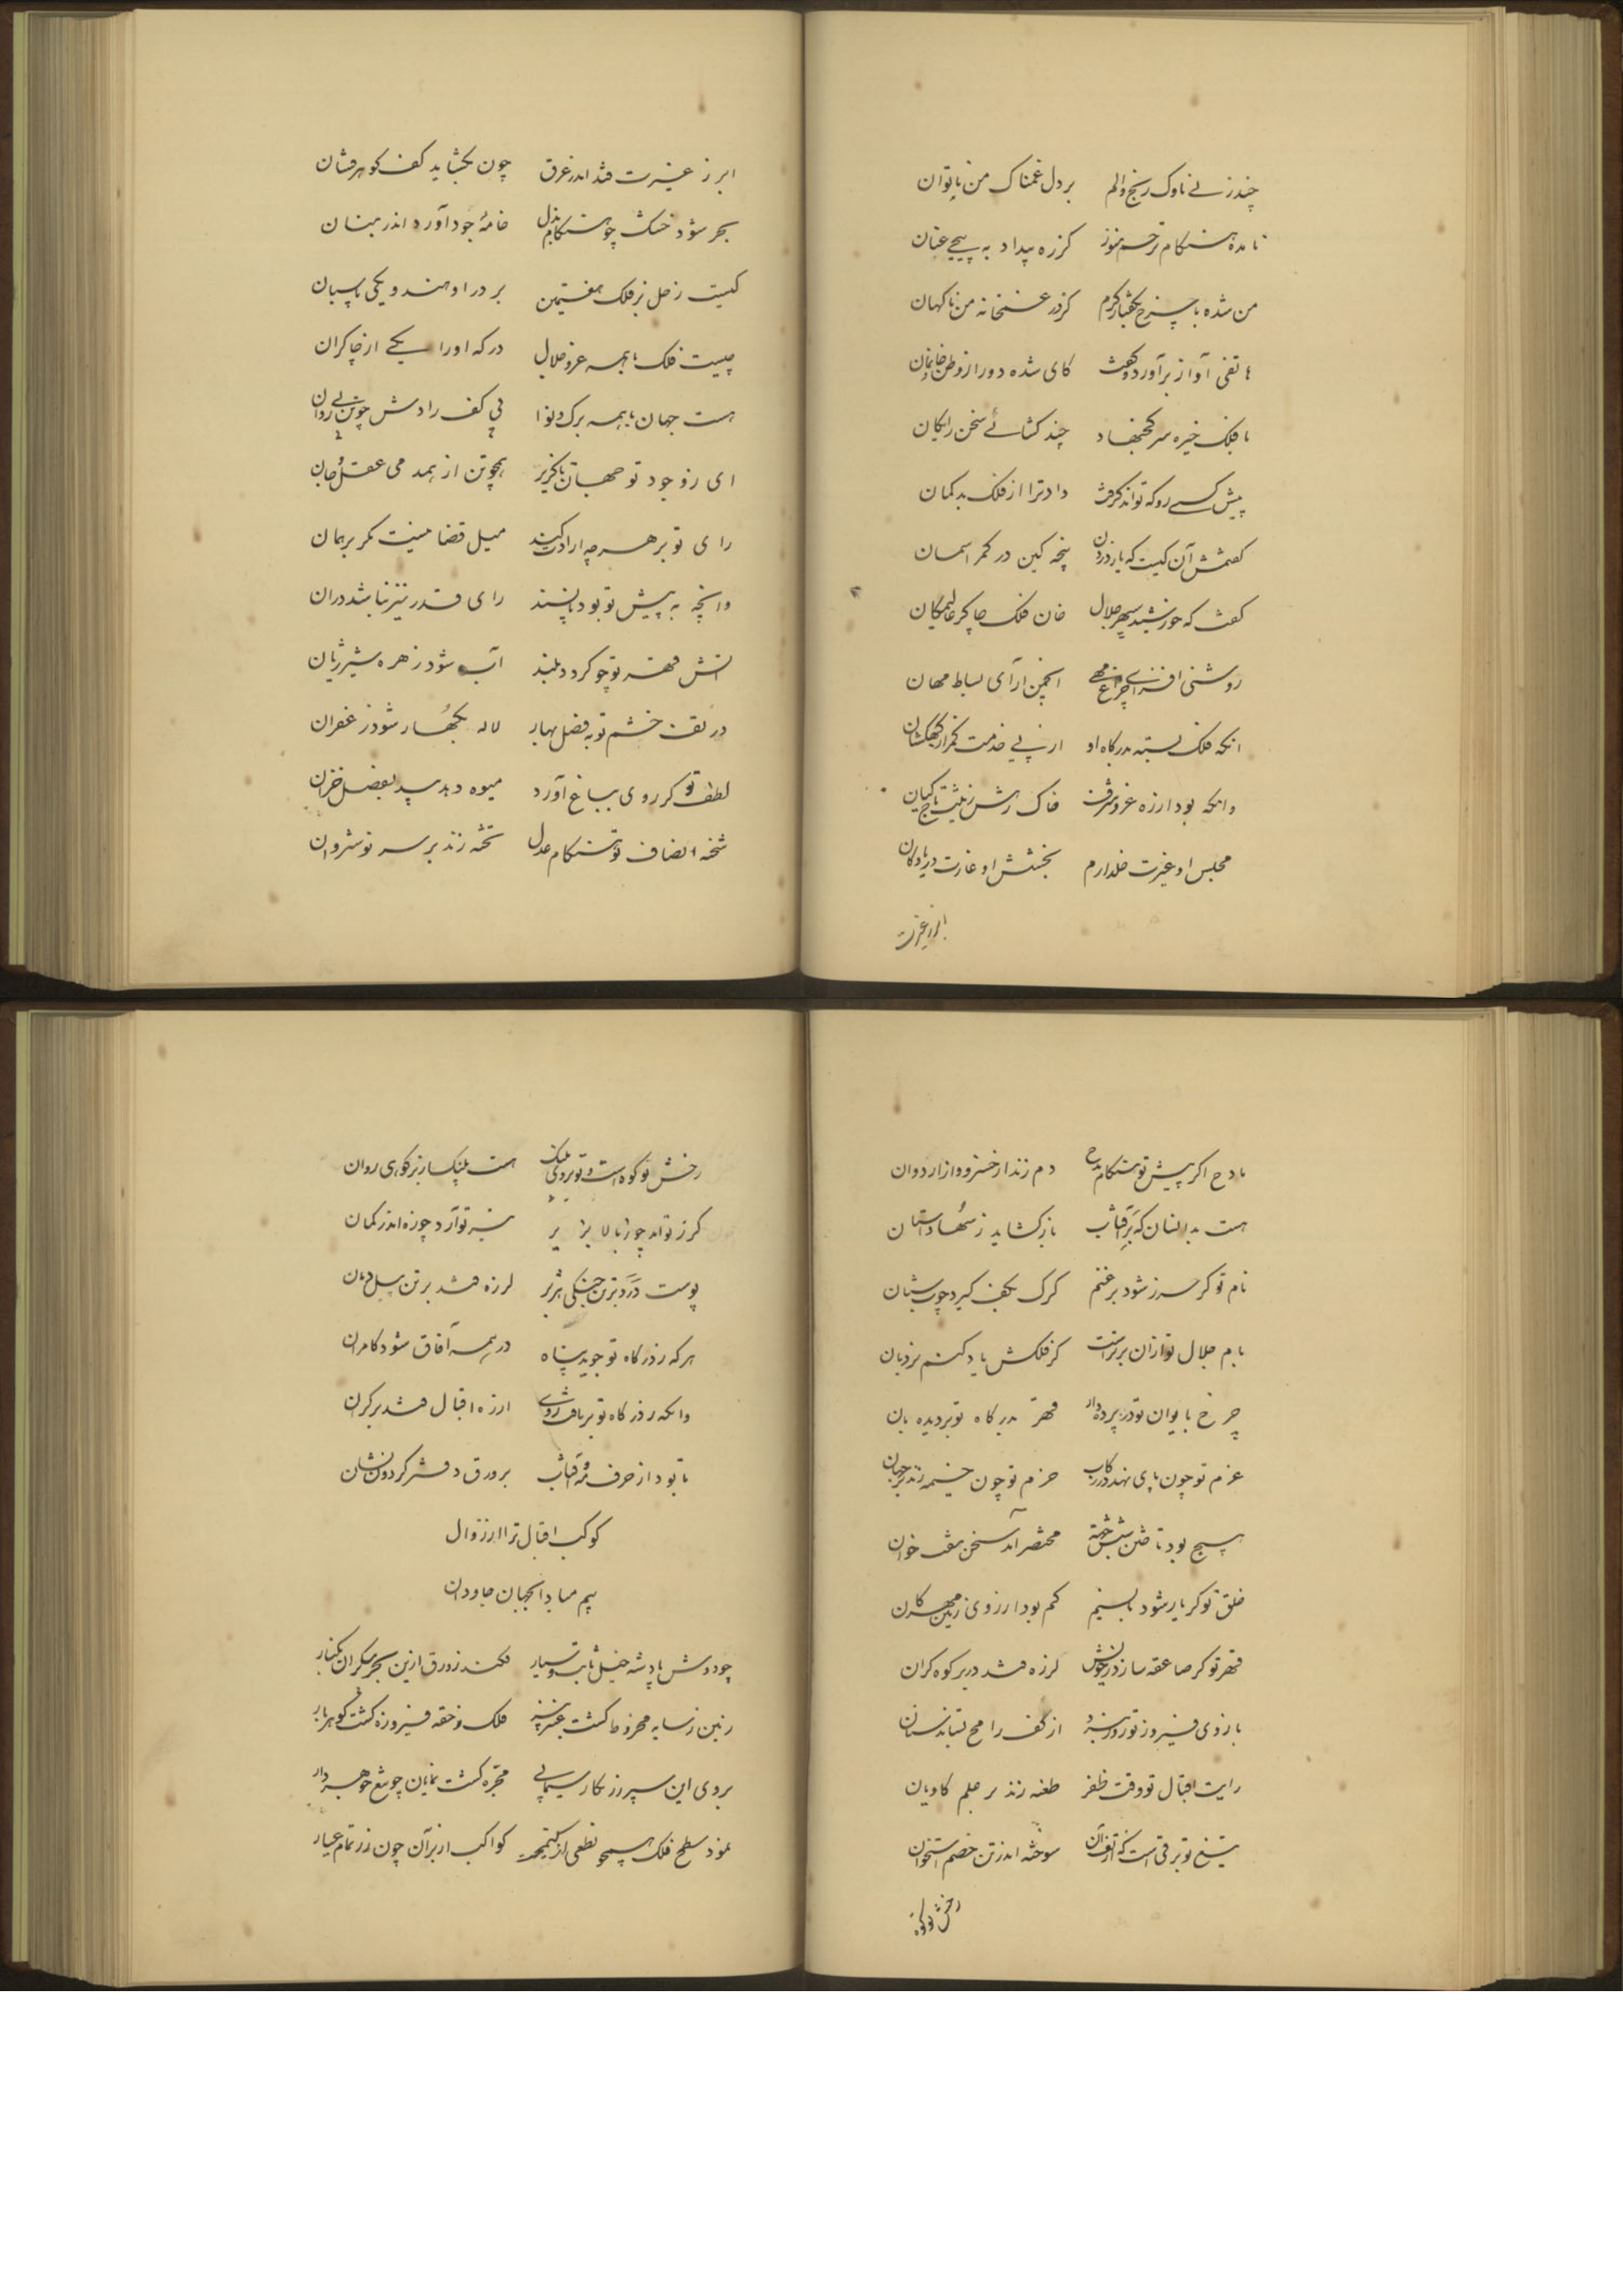 چند زنے ناوک رنج و الم بر دل غمناک من ناتوان
نامده هنگام ترحم هنوز کز ره بیداد به پیچے عنان
من شده با چرخ بگفتار گرم کز در غمخانه من ناگهان
هاتفی آواز برآورد و گفت کای شده دور از وطن و خانمان
با فلک خیره سر کج نهاد چند کشائے سخن رایگان
پیش کسے رو که تواند گرفت داد ترا از فلک بدگمان
گفتمش آن کیست که یارد زدن پنجه کین در کمر آسمان
گفت که خورشید سپهر جلال خان فلک چاکر
روشنی افزاے چراغ مهے انجمن آرای بساط مهان
انکه فلک بسته بدرگاه او از پے خدمت کمر از کهکشان
وانکه بود از ره عز و شرف خاک رهش زینت تاج کیان
مجلس او غیرت خلد ارم بخشش او غارت دریا و کان
ابر ز غیرت
ابر ز غیرت فتد اندر عرق چون بگشاید کف گوهرفشان
بحر شود خشک چو هنگام بذل خامهٔ جود آورد اندر بنان
کیست زحل بر فلک هفتمین بر در او هندویکی پاسبان
چیست فلک با همه عز و جلال درگه او را یکے از چاکران
هست جهان با همه برگ و نوا بی کف رادش چو تن بے روان
ای ز وجود تو جهان ناگزیر همچو تن از همدمی عقل و جان
رای تو بر هرچه ارادت کند میل قضا نیست مگر بر همان
وانچه به پیش تو بود ناپسند رای قدر نیز نباشد در ان
اتش قهر تو چو گردد بلند آب شود زهره شیر ژیان
در تف خشم تو به فصل بهار لاله بکهسار شود زعفران
لطف تو گر روی بباغ آورد میوه دهد بید بفصل خزان
شحنه انصاف تو هنگام عدل تخته زند بر سر نوشروان
مادح اگر پیش تو هنگام مدح دم زند از خسرو و از اردوان
هست بد انسان که بر آفتاب باز گشاید ز سها داستان
نام تو گر حرز شود بر غنم گرگ بکف گیرد چوب شبان
بام جلال تو ازان برتر است کز فلکش یاد کنم نردبان
چرخ بایوان تو در پرده دار مهر بدرگاه تو بر دیده بان
عزم تو چون پای نهد در رکاب حزم تو چون خیمه زند بر جهان
هیچ بود تاختن شش جهة مختصر آمد سخن هفت خوان
خلق تو گر یار شود با نسیم کم بود ارزوی زمین مهرگان
قهر تو گر صاعقه سازد ز خویش لرزه فتد در بر کوه گران
بازوی فیروز تو روز نبرد از کف رامح بستاند سنان
رایت اقبال تو وقت ظفر طعنه زند بر علم کاویان
تیغ تو برقی است که از تف آن سوخته اندر تن خصم استخوان
رخش تو کوه
رخش تو کوه است و تو بروی پلنگ هست پلنگ از بر کوهی روان
پوست درد بر تن جنگی هژبر لرزه فتد بر تن پیل دمان
هرکه ز درگاه تو جوید پناه در همه آفاق شود کامران
وانکه ز درگاه تو برتافت روے از ره اقبال فتد بر کران
تا بود از حرف مه و آفتاب بر ورق دفتر گردون نشان
کوکب اقبال ترا از زوال
بیم مبادا بجهان جاودان
چو دوش پادشه خیل ثابت و سیار فکند زورق ازین بحر بیکران بکنار
زمین ز سایه مخروط گشت عنبر بیز فلک ز حقه فیروزه گشت گوهربار
بروی این سپر زرنگار سیمابے مجره گشت نمایان چو تیغ جوهردار
نمود سطح فلک همچو نطعی از کواکب از بر آن چون زر تمام عیار